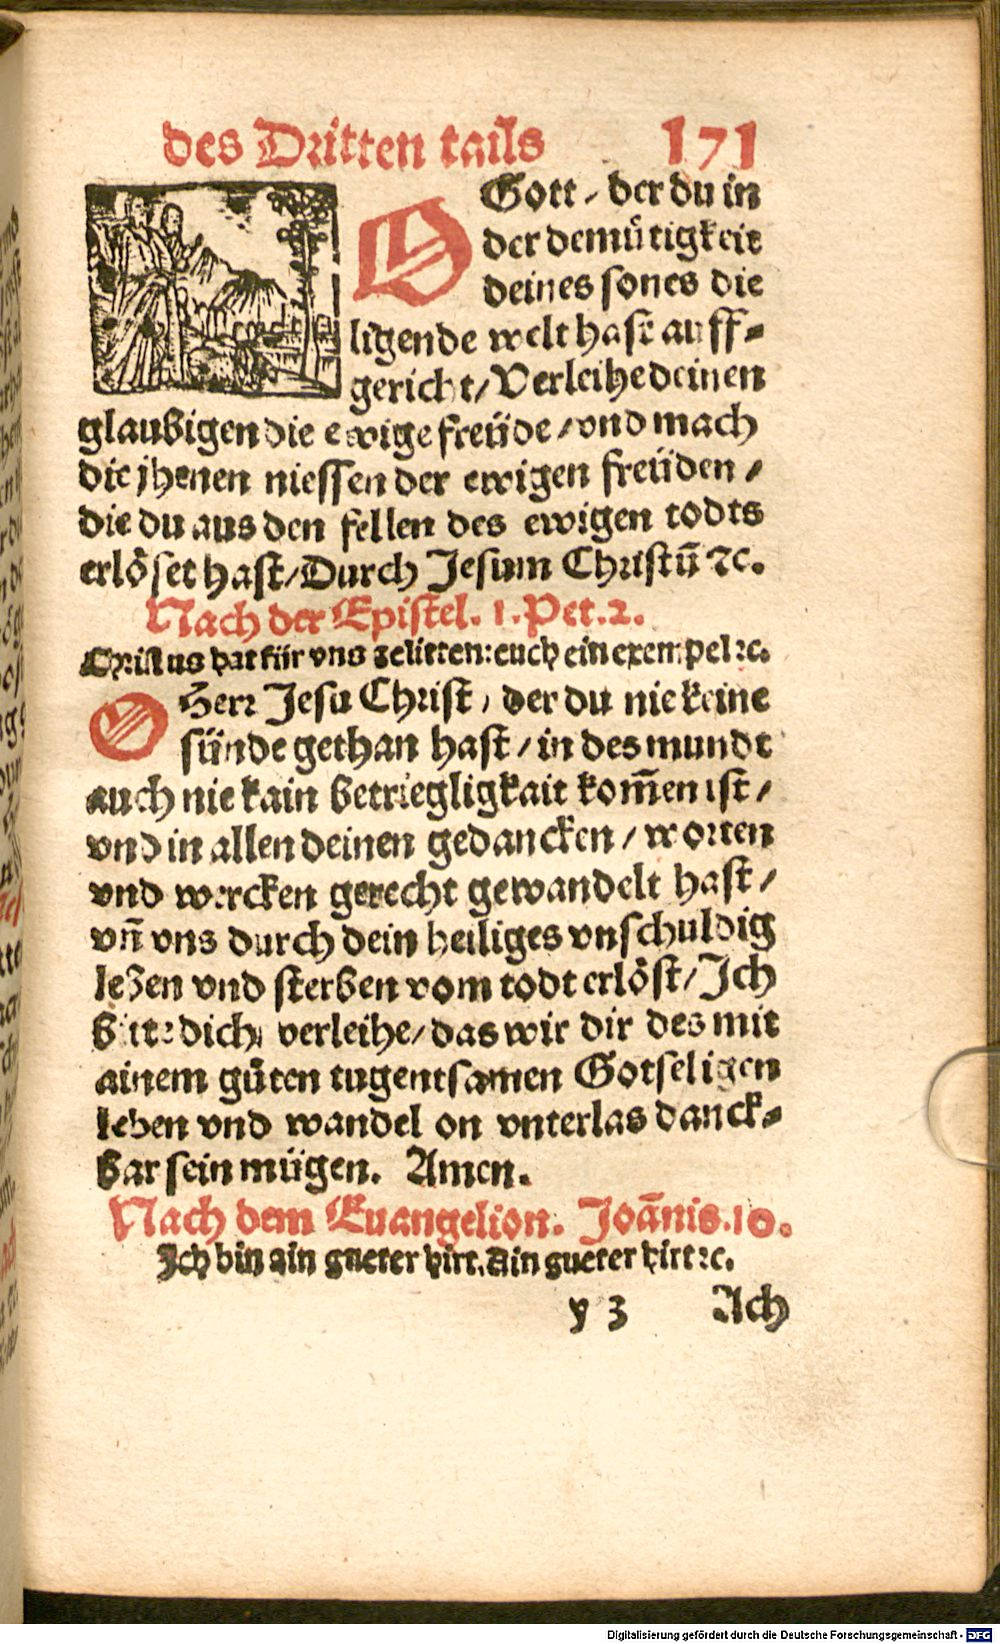 des Dritten tails 171
O Gott / der du in
der demütigkeit
deines sones die
ligende welt hast auff-
gericht / Verleihe deinen
glaubigen die ewige freüde / vnd mach
die jhenen niessen der ewigen freüden /
die du aus den fellen des ewigen todts
erlöset hast / Durch Jesum Christū ꝛc.
Nach der Epistel. 1. Pet. 2.
Christus hat für vns zelitten: euch ein exempel ꝛc.
O Herr Jesu Christ / der du nie keine
sünde gethan hast / in des mundt
auch nie kain betriegligkait kom̄en ist /
vnd in allen deinen gedancken / worten
vnd wercken gerecht gewandelt hast /
vn̄ vns durch dein heiliges vnschuldig
leben vnd sterben vom todt erlöst / Ich
bitte dich verleihe / das wir dir des mit
ainem gůten tugentsamen Gotseligen
leben vnd wandel on vnterlas danck-
bar sein mügen. Amen.
Nach dem Euangelion. Joān̄is. 10.
Ich bin ain gueter hirt. Ain gueter hirt ꝛc.
y 3 Ach
Digitalisierung gefördert durch die Deutsche Forschungsgemeinschaft - DFG